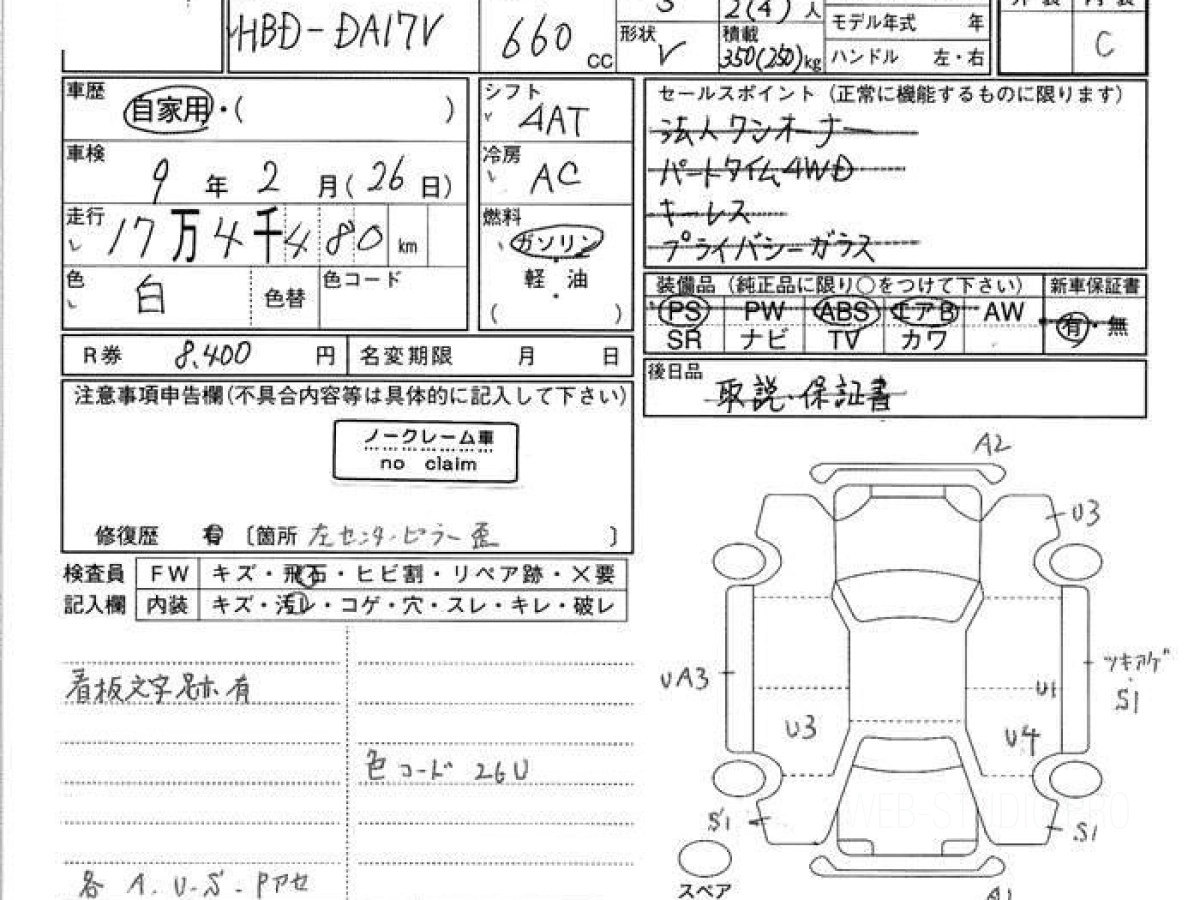 HBD-DA17V
660 CC
形状 V
2(4) 人
積載 350(250)kg
モデル年式 年
ハンドル 左・右
C
車歴 自家用・( )
車検 9 年 2 月(26日)
走行 17万4千480 km
色 白 色替 色コード
シフト 4AT
冷房 AC
燃料 ガソリン
軽・油
( )
セールスポイント(正常に機能するものに限ります)
法人ワンオーナー
パートタイム4WD
キーレス
プライバシーガラス
装備品(純正品に限り○をつけて下さい) 新車保証書
PS PW ABS エアB AW 有・無
SR ナビ TV カワ
R券 8,400 円 名変期限 月 日
後日品 取説・保証書
注意事項申告欄(不具合内容等は具体的に記入して下さい)
ノークレーム車
no claim
修復歴 有 〔箇所 左センターピラー歪 〕
検査員 FW キズ・飛石・ヒビ割・リペア跡・×要
記入欄 内装 キズ・汚レ・コゲ・穴・スレ・キレ・破レ
看板文字跡有
色コード 26U
各 A.U.S.Pアセ
A2
U3
UA3
ツキアゲ
S1
U1
U3
U4
S1
S1
スペア
A1
WEB-STUDIO.PRO